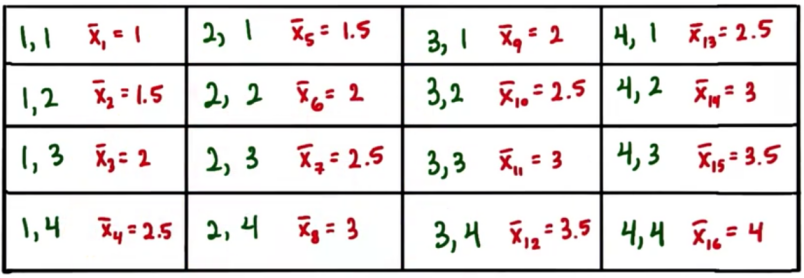 1, 1 x̄₁ = 1 2, 1 x̄₅ = 1.5 3, 1 x̄₉ = 2 4, 1 x̄₁₃ = 2.5
1, 2 x̄₂ = 1.5 2, 2 x̄₆ = 2 3, 2 x̄₁₀ = 2.5 4, 2 x̄₁₄ = 3
1, 3 x̄₃ = 2 2, 3 x̄₇ = 2.5 3, 3 x̄₁₁ = 3 4, 3 x̄₁₅ = 3.5
1, 4 x̄₄ = 2.5 2, 4 x̄₈ = 3 3, 4 x̄₁₂ = 3.5 4, 4 x̄₁₆ = 4